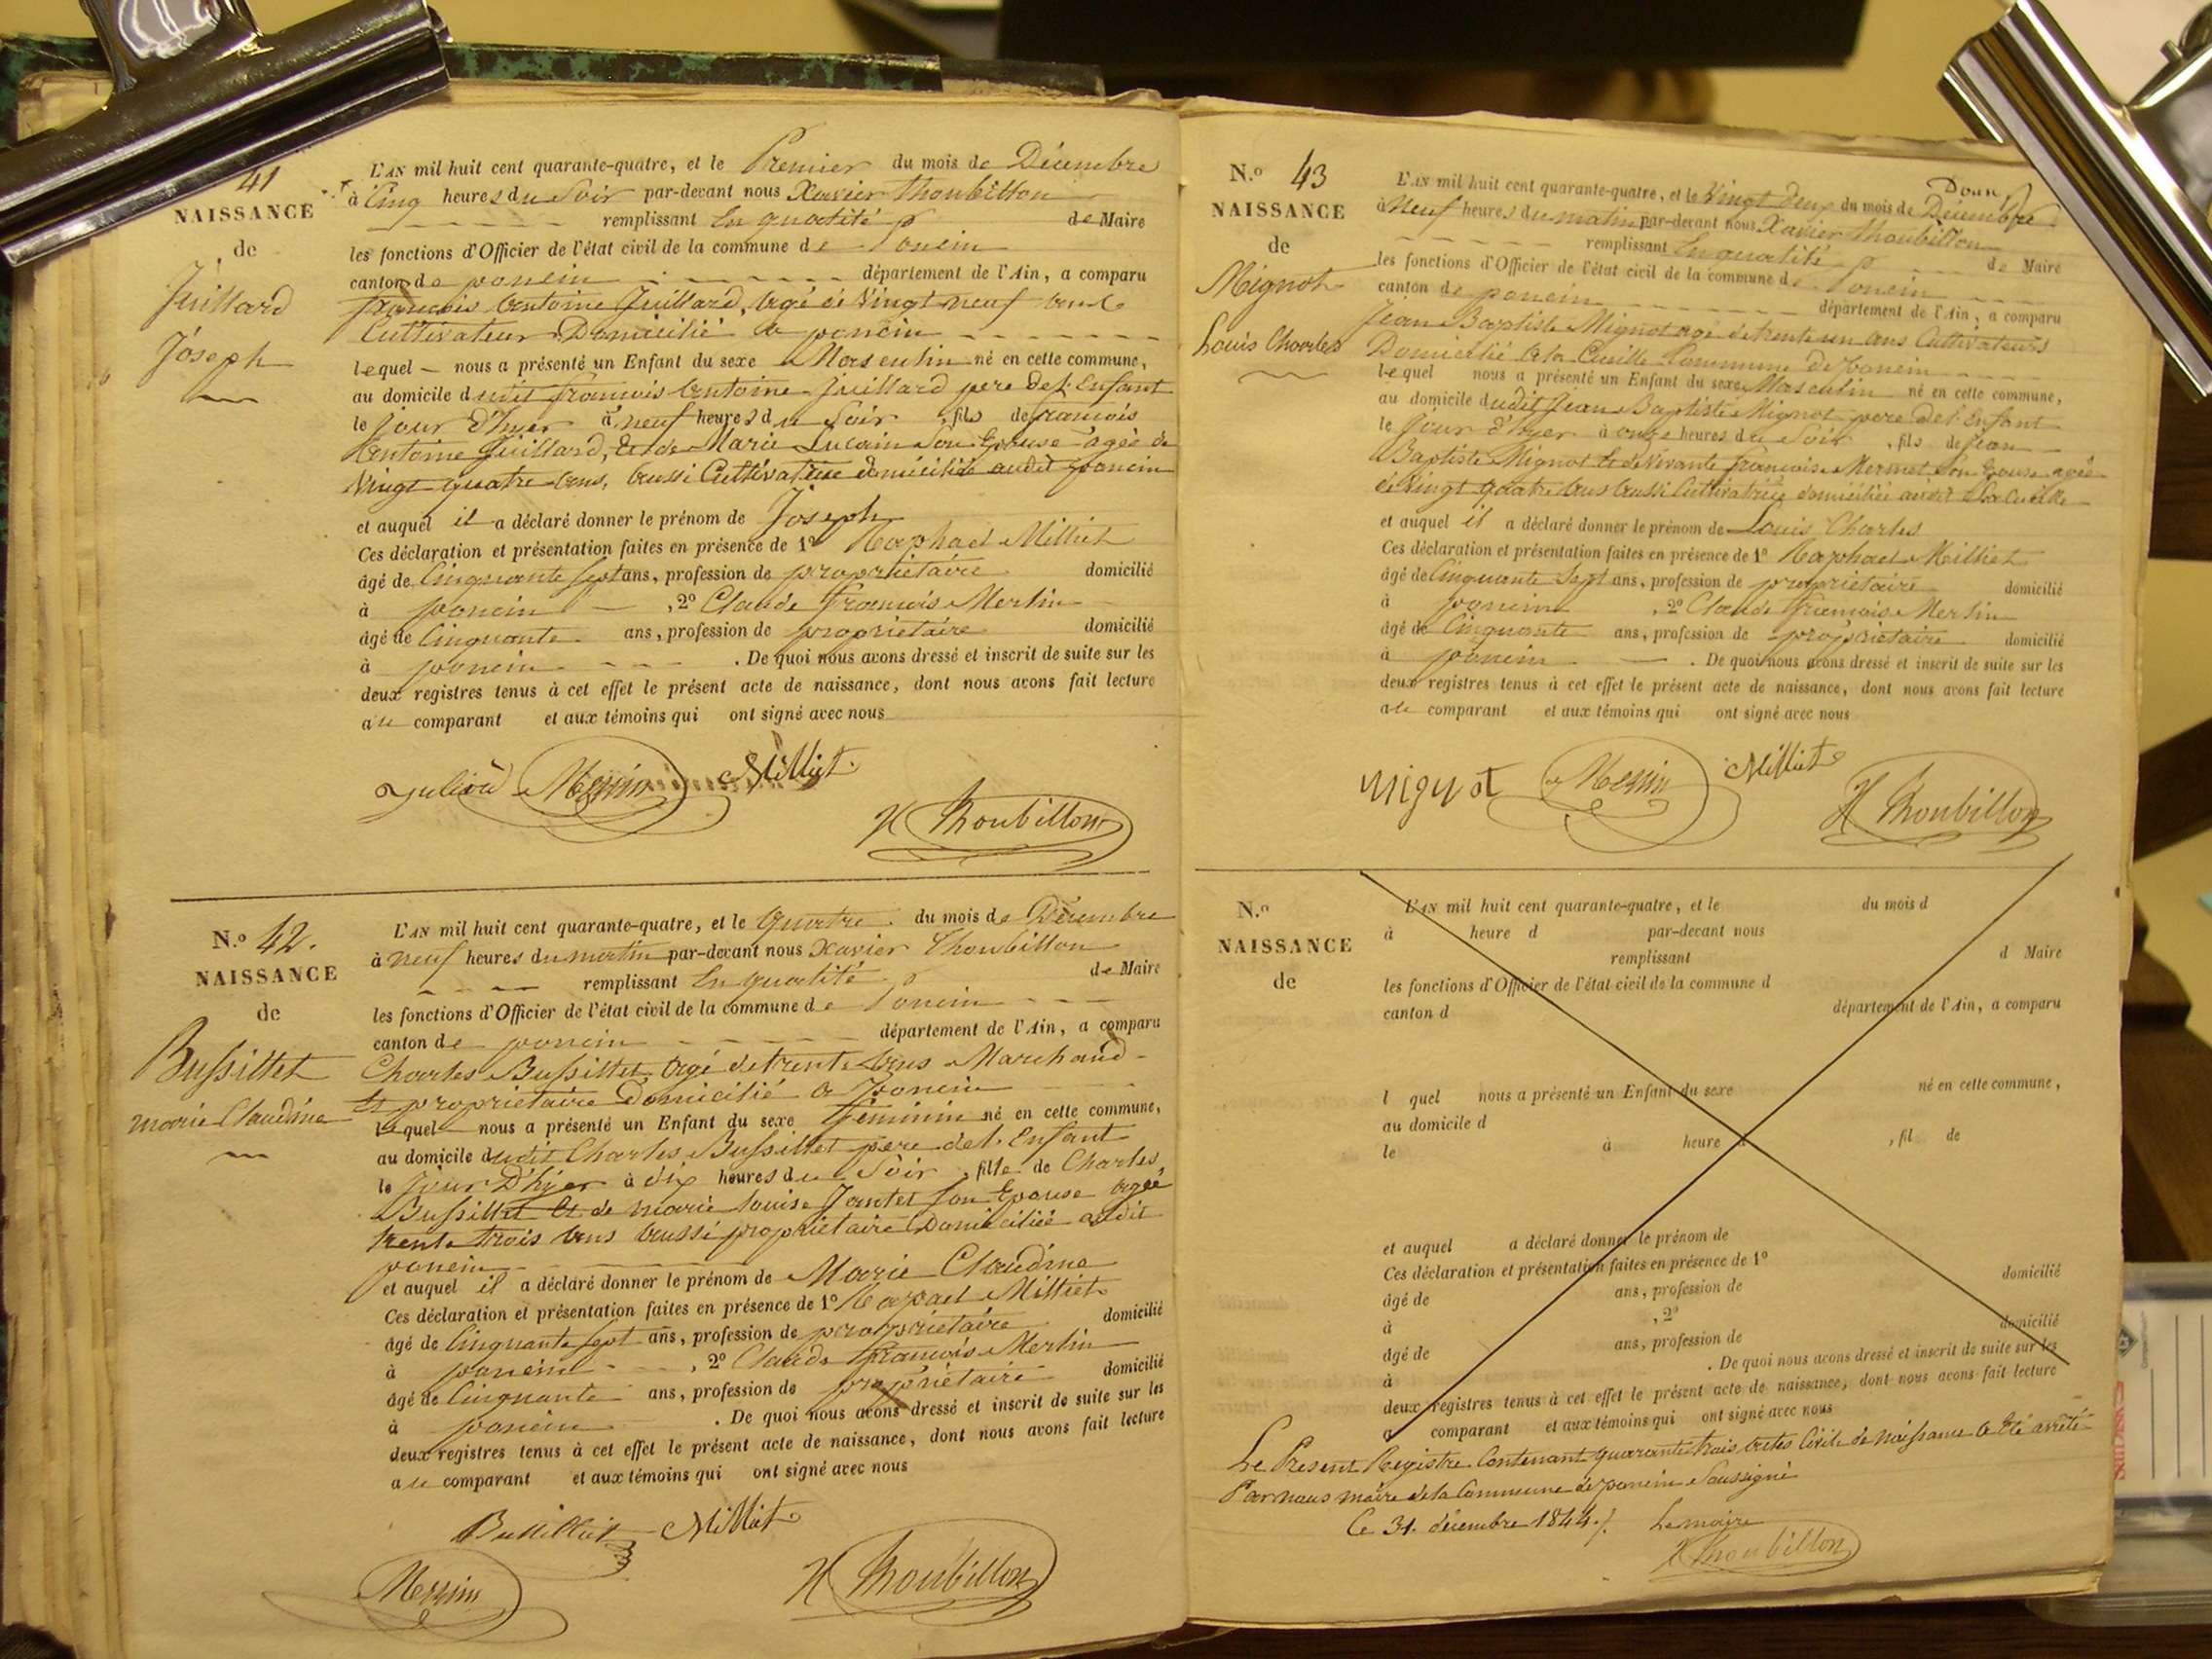 41
NAISSANCE
de
Juillard
Joseph
L'AN mil huit cent quarante-quatre, et le Premier du mois de Décembre
à Cinq heures du Soir par-devant nous Xavier Thoubillon
remplissant En qualité de Maire
les fonctions d'Officier de l'état civil de la commune de Poncin
canton de poncin département de l'Ain, a comparu
françois Antoine Juillard, agé de Vingt neuf ans
Cultivateur Domicilié a poncin
lequel nous a présenté un Enfant du sexe Masculin né en cette commune,
au domicile dudit françois Antoine Juillard pere de l'Enfant
le jour d'hyer à neuf heures du Soir, fils de françois
Antoine Juillard, Et de Marie Lucain Son Epouse agée de
Vingt quatre ans, aussi Cultivatrice domiciliée audit poncin
et auquel il a déclaré donner le prénom de Joseph
Ces déclaration et présentation faites en présence de 1º Raphael Milliet
âgé de Cinquante Sept ans, profession de propriétaire domicilié
à poncin, 2º Claude François Merlin
âgé de Cinquante ans, profession de propriétaire domicilié
à poncin. De quoi nous avons dressé et inscrit de suite sur les
deux registres tenus à cet effet le présent acte de naissance, dont nous avons fait lecture
au comparant et aux témoins qui ont signé avec nous
Milliet
X Thoubillon
N.º 42.
NAISSANCE
de
Bussillet
marie Claudine
L'AN mil huit cent quarante-quatre, et le Quatre du mois de Décembre
à neuf heures du matin par-devant nous Xavier Thoubillon
remplissant En qualité de Maire
les fonctions d'Officier de l'état civil de la commune de Poncin
canton de poncin département de l'Ain, a comparu
Charles Bussillet agé de trente ans Marchand
Et propriétaire Domicilié a Poncin
lequel nous a présenté un Enfant du sexe féminin né en cette commune,
au domicile dudit Charles Bussillet pere de l'Enfant
le jour D'hyer à dix heures du Soir, fille de Charles
Bussillet Et de marie louise Jantet Son Epouse agée
trente trois ans aussi propriétaire Domiciliée audit
poncin
et auquel il a déclaré donner le prénom de Marie Claudine
Ces déclaration et présentation faites en présence de 1º Rapael Milliet
âgé de Cinquante Sept ans, profession de propriétaire domicilié
à poncin, 2º Claude François Merlin
âgé de Cinquante ans, profession de propriétaire domicilié
à poncin. De quoi nous avons dressé et inscrit de suite sur les
deux registres tenus à cet effet le présent acte de naissance, dont nous avons fait lecture
au comparant et aux témoins qui ont signé avec nous
Bussillet Milliet
X Thoubillon
N.º 43
NAISSANCE
de
Mignot
Louis Charles
L'AN mil huit cent quarante-quatre, et le Vingt Deux du mois de Décembre
à Neuf heures du matin par-devant nous Xavier Thoubillon
remplissant En qualité de Maire
les fonctions d'Officier de l'état civil de la commune de Poncin
canton de poncin département de l'Ain, a comparu
Jean Baptiste Mignot agé de trente un ans Cultivateur
Domicilié a la Cueille Commune de Poncin
lequel nous a présenté un Enfant du sexe Masculin né en cette commune,
au domicile dudit Jean Baptiste Mignot pere de l'Enfant
le Jour d'hyer à onze heures du Soir, fils de Jean
Baptiste Mignot Et de Vivante françoise Mermet Son Epouse agée
de Vingt quatre ans aussi Cultivatrice domiciliée audit La Cueille
et auquel il a déclaré donner le prénom de Louis Charles
Ces déclaration et présentation faites en présence de 1º Raphael Milliet
âgé de Cinquante Sept ans, profession de propriétaire domicilié
à poncin, 2º Claude françois Merlin
âgé de Cinquante ans, profession de propriétaire domicilié
à poncin. De quoi nous avons dressé et inscrit de suite sur les
deux registres tenus à cet effet le présent acte de naissance, dont nous avons fait lecture
au comparant et aux témoins qui ont signé avec nous
mignot Milliet
X Thoubillon
N.º
NAISSANCE
de
L'AN mil huit cent quarante-quatre, et le du mois d
à heure d par-devant nous
remplissant d Maire
les fonctions d'Officier de l'état civil de la commune d
canton d département de l'Ain, a comparu
l quel nous a présenté un Enfant du sexe né en cette commune,
au domicile d
le à heure d, fil de
et auquel a déclaré donner le prénom de
Ces déclaration et présentation faites en présence de 1º
âgé de ans, profession de domicilié
à, 2º
âgé de ans, profession de domicilié
à. De quoi nous avons dressé et inscrit de suite sur les
deux registres tenus à cet effet le présent acte de naissance, dont nous avons fait lecture
a comparant et aux témoins qui ont signé avec nous
Le Present Registre Contenant quarante trois actes Civils de naissance a Eté arrêté
Par nous maire de la Commune de poncin Soussigné
Ce 31. décembre 1844./. Le maire
X Thoubillon